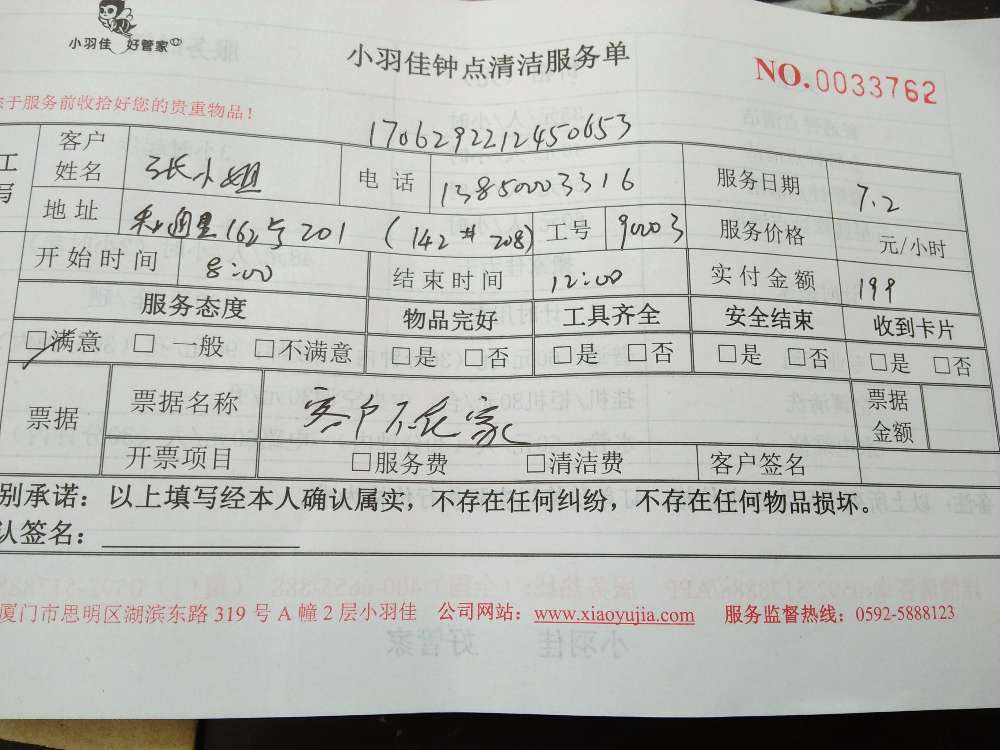 小羽佳 好管家
小羽佳钟点清洁服务单
NO.0033762
于服务前收拾好您的贵重物品！
1706292212450653
客户姓名 张小姐 电话 13850003316 服务日期 7.2
地址 162号201 (142#208) 工号 90003 服务价格 元/小时
开始时间 8:00 结束时间 12:00 实付金额 199
服务态度 物品完好 工具齐全 安全结束 收到卡片
□满意 □一般 □不满意 □是 □否 □是 □否 □是 □否 □是 □否
票据 票据名称 客户不在家 票据金额
开票项目 □服务费 □清洁费 客户签名
别承诺：以上填写经本人确认属实，不存在任何纠纷，不存在任何物品损坏。
认签名：
厦门市思明区湖滨东路 319 号 A 幢 2 层小羽佳 公司网站：www.xiaoyujia.com 服务监督热线：0592-5888123